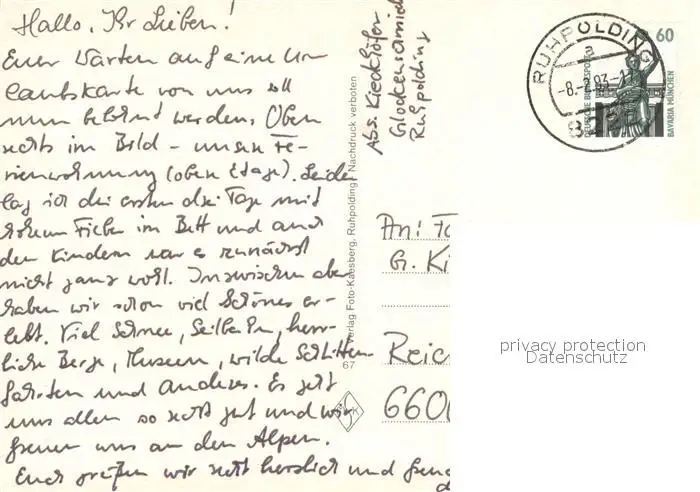 Hallo, Ihr Lieben!
Euer Warten auf eine Ur-
laubskarte von uns soll
nun belohnt werden. Oben
rechts im Bild - unsere Fe-
rienwohnung (obere Etage). Leider
lag ich die ersten drei Tage mit
hohem Fieber im Bett und auch
den Kindern war es zunächst
nicht ganz wohl. Inzwischen aber
haben wir schon viel Schönes er-
lebt. Viel Schnee, Seilbahn, herr-
liche Berge, Museum, wilde Schlitten-
fahrten und anderes. Es geht
uns allen so recht gut und wir
freuen uns an den Alpen.
Euch grüßen wir recht herzlich und
Abs. Kieckhöfer
Glockenschmiede
Ruhpolding
Verlag Foto-Kaesberg, Ruhpolding · Nachdruck verboten
67
RUHPOLDING
a
-8.-2.93-17
60
DEUTSCHE BUNDESPOST
BAVARIA MÜNCHEN
An:
G. Ki
Reic
660
privacy protection
Datenschutz